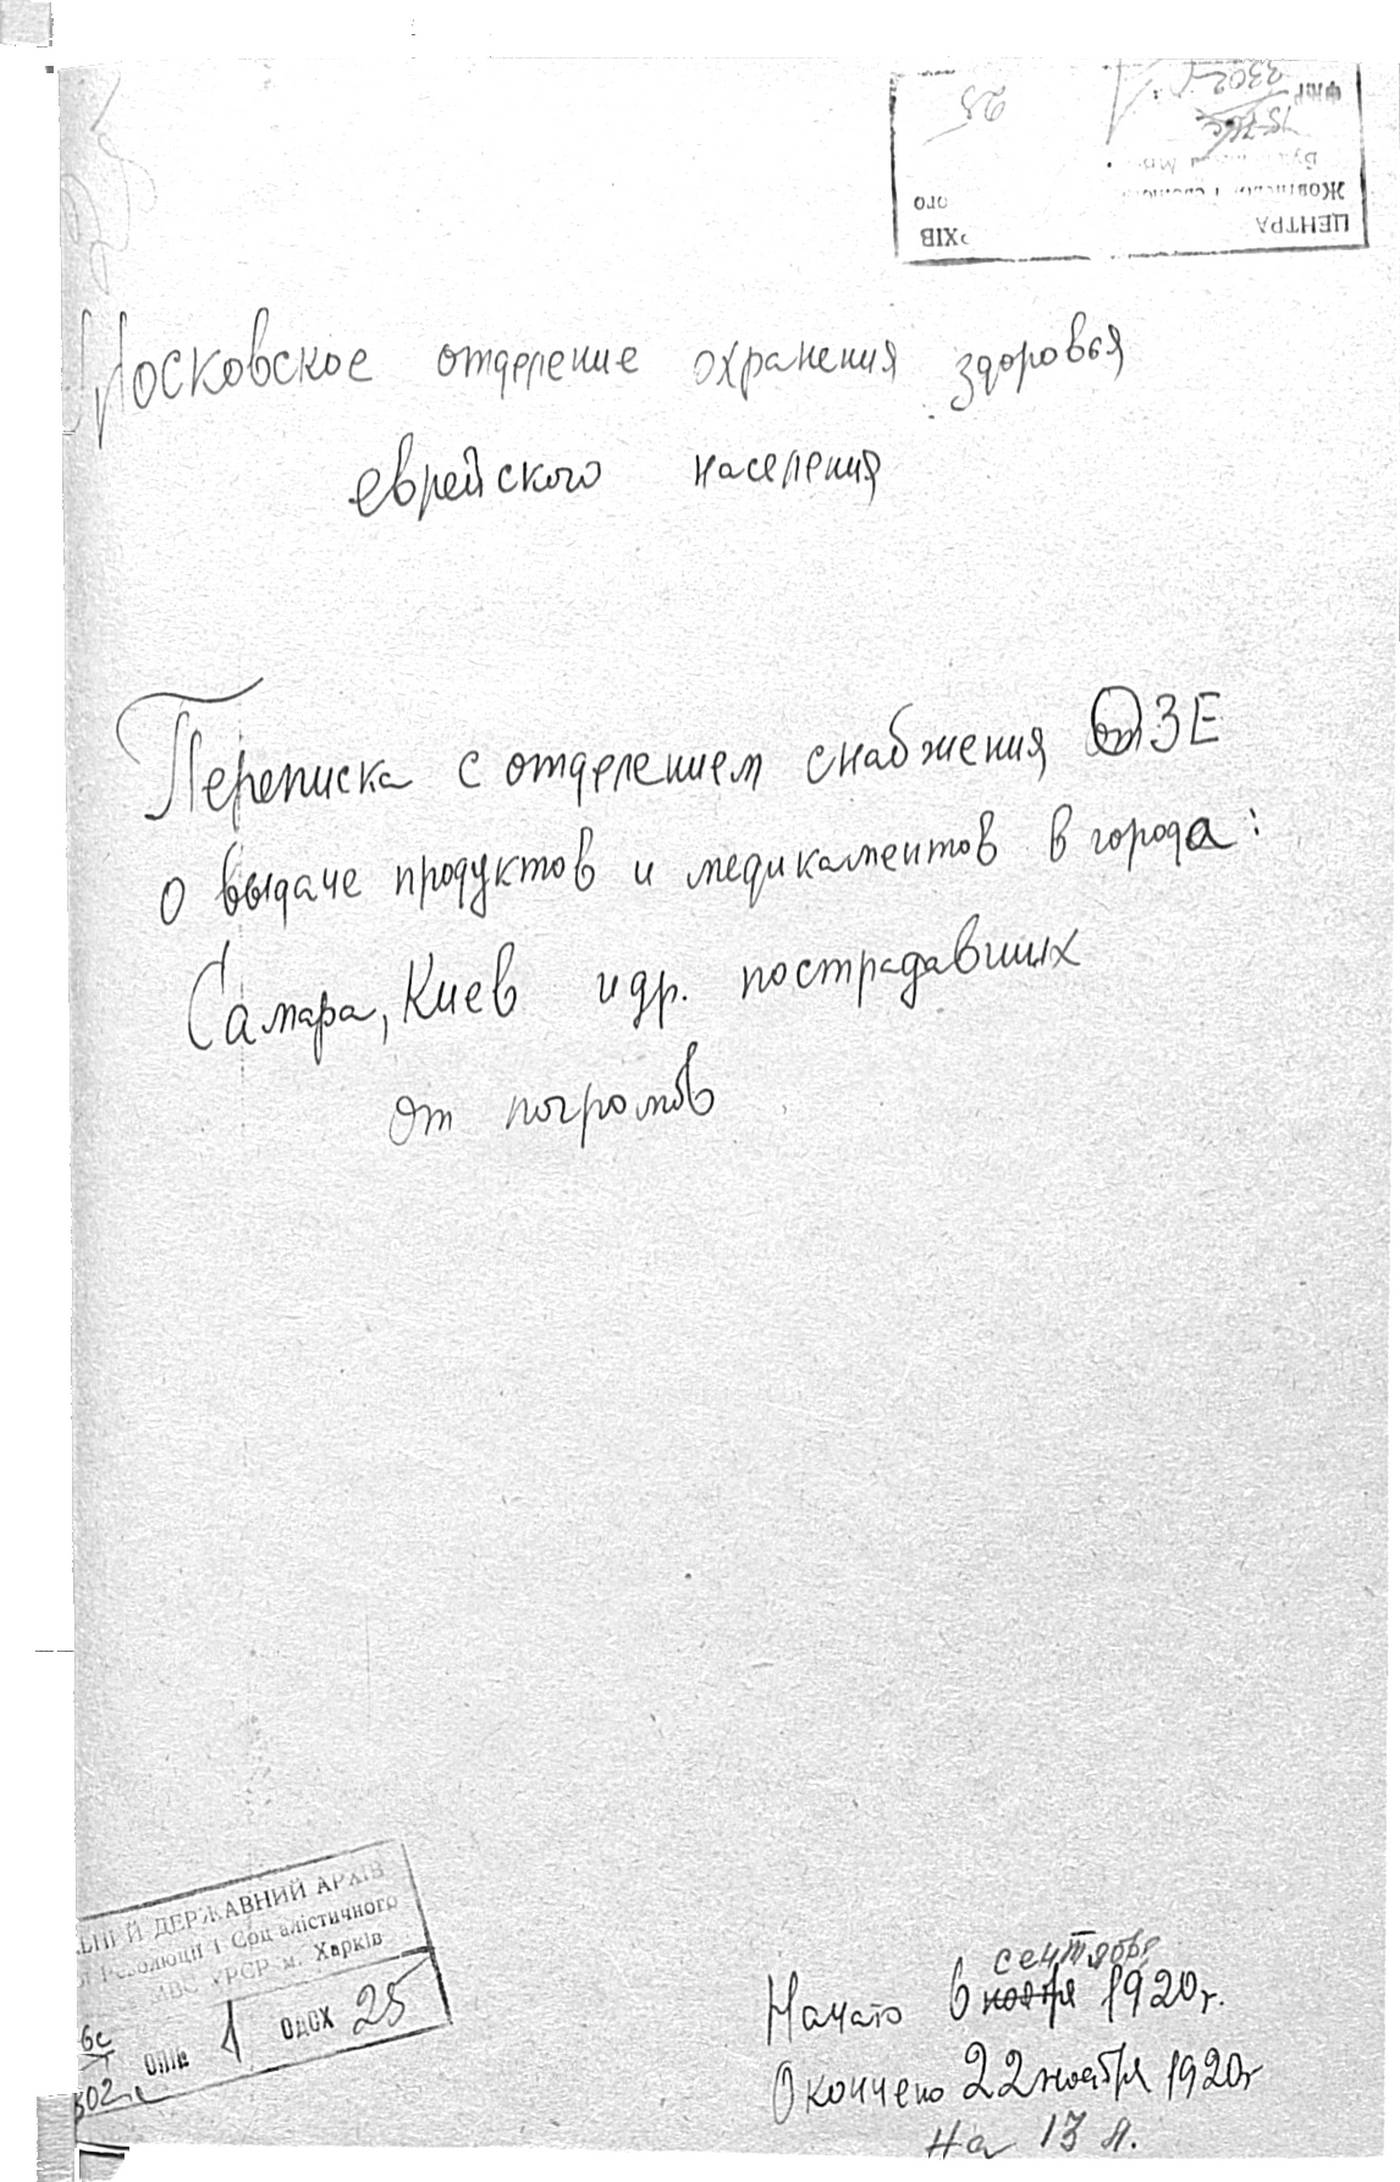 ЦЕНТРА ХІВ
ого
ФОНД 2302
25
Московское отделение охранения здоровья
еврейского населения
Переписка с отделением снабжения ОЗЕ
о выдаче продуктов и медикаментов в города:
Самара, Киев и др. пострадавших
от погромов
ДЕРЖАВНИЙ АРХІВ
Революції і Соціалістичного
МВС УРСР м. Харків
1 ОдСХ 25
сентября
Начато 6 ноября 1920 г.
Окончено 22 ноября 1920 г
На 13 л.